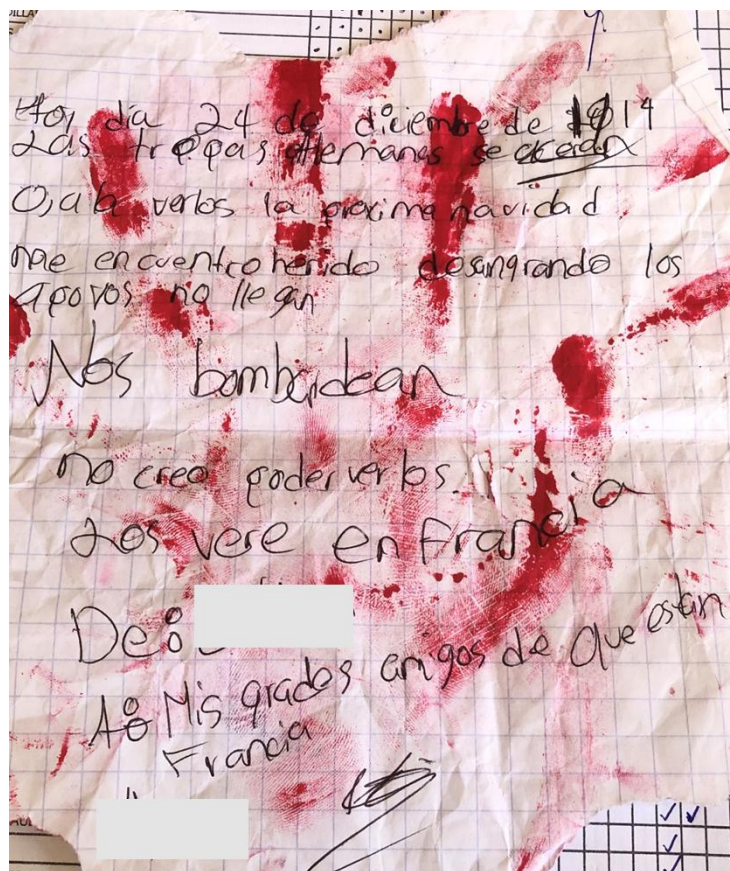 Hoy día 24 de diciembre de 1914
Las tropas Alemanas se acercan
Ojala verlos la proxima navidad
me encuentro herido desangrando los
apoyos no llegan
Nos bombardean
no creo poder verlos.
Los vere en Francia
De:
A: Mis grados amigos de que están
Francia